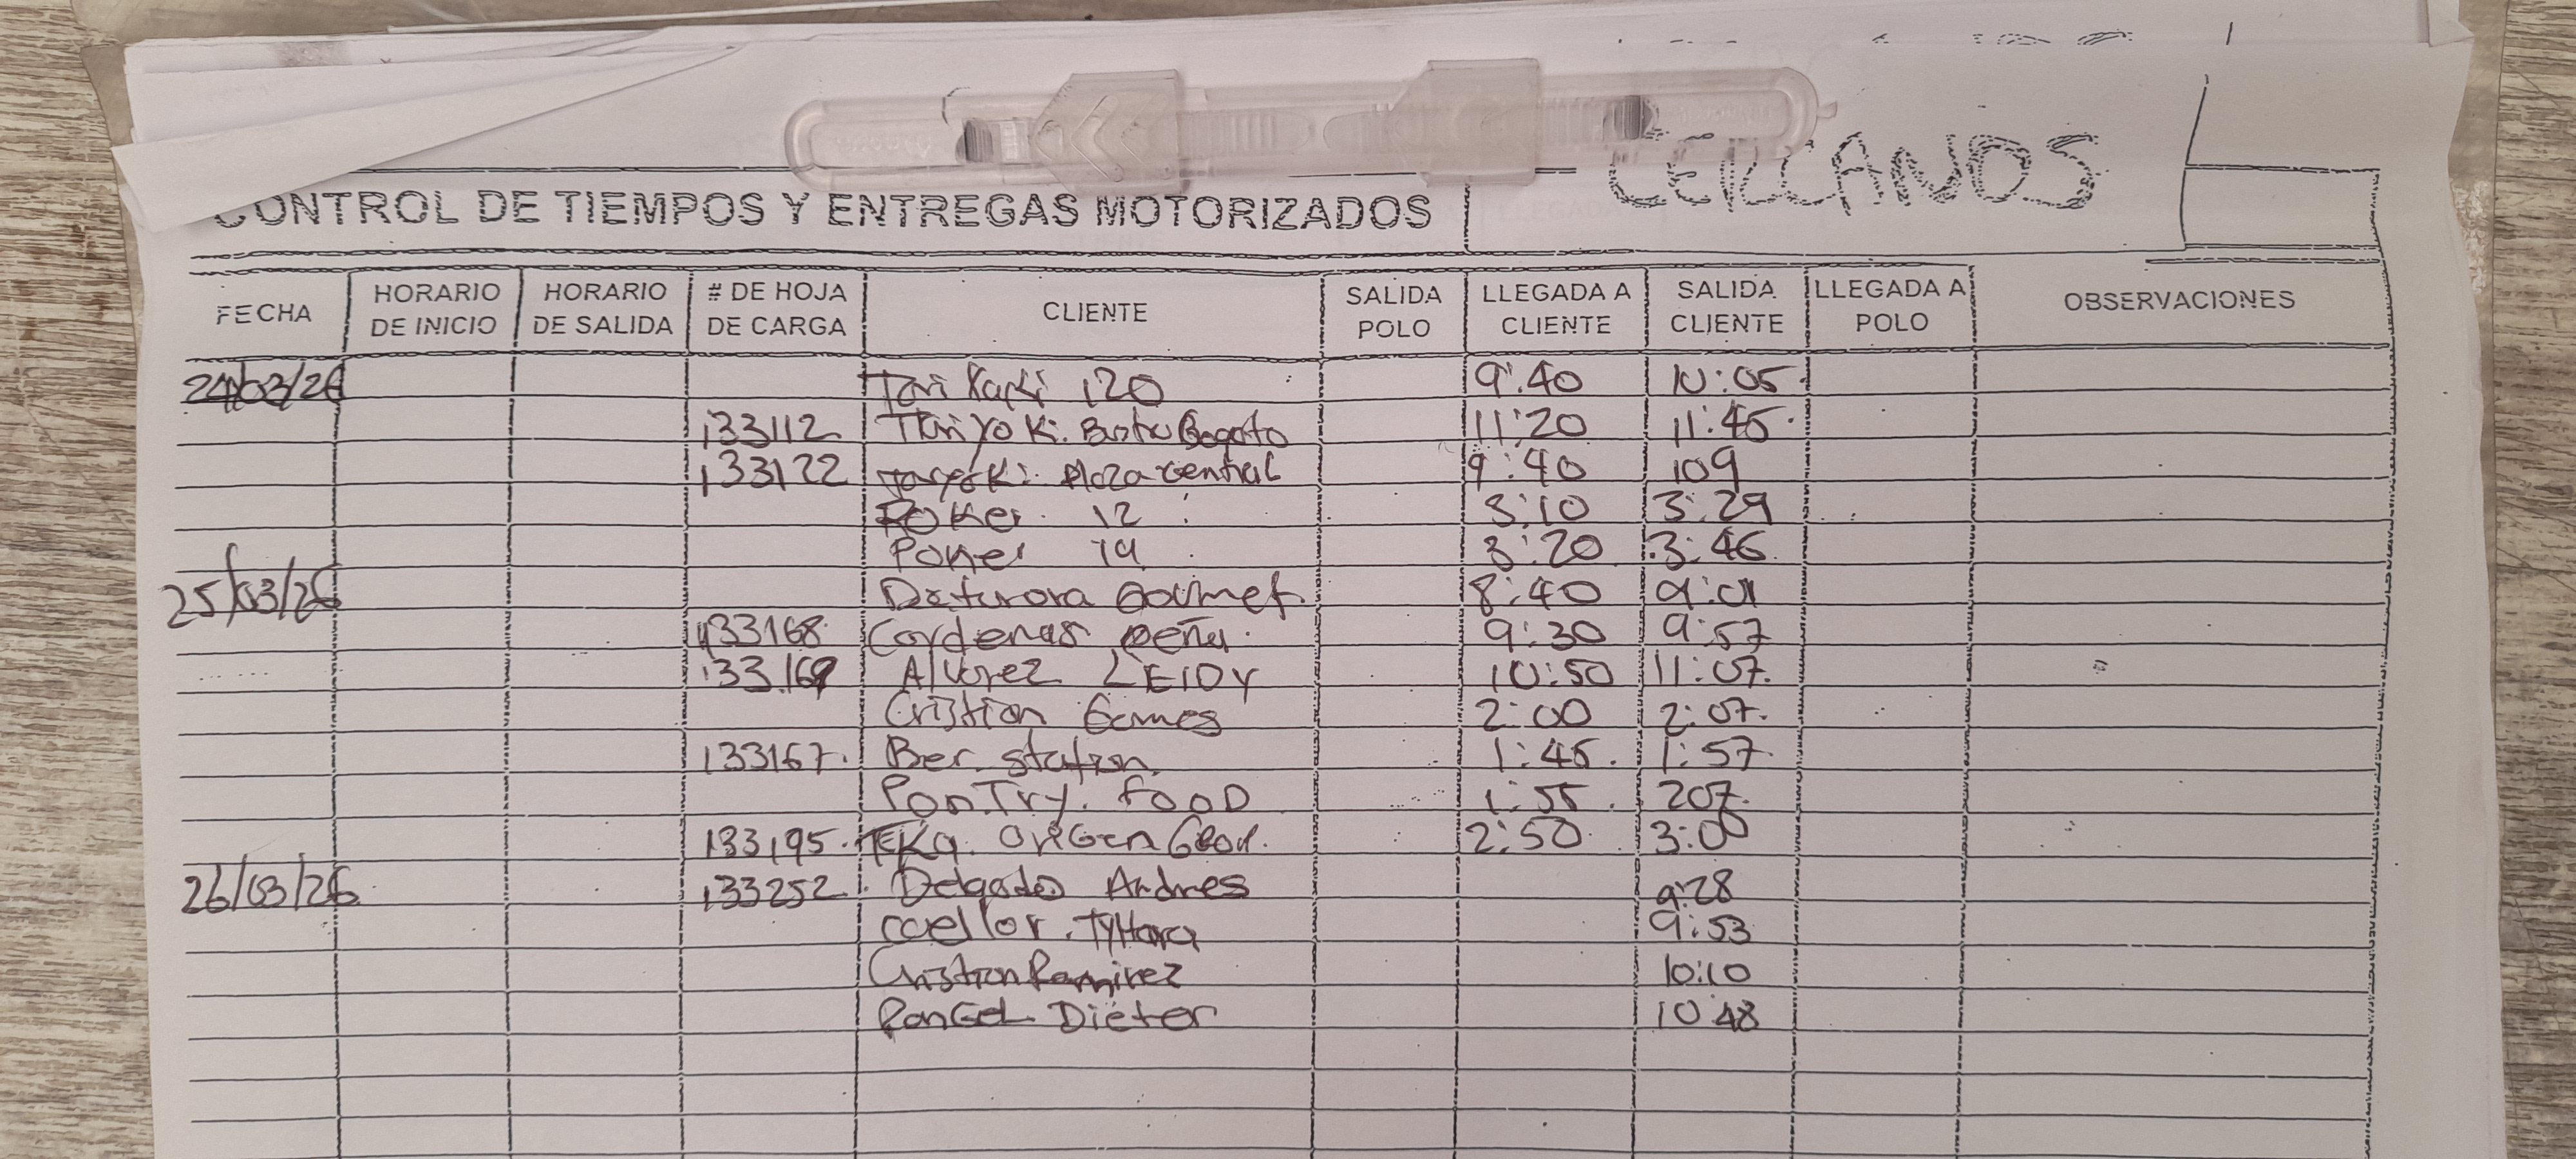 CERCANOS
CONTROL DE TIEMPOS Y ENTREGAS MOTORIZADOS
FECHA HORARIO DE INICIO HORARIO DE SALIDA # DE HOJA DE CARGA CLIENTE SALIDA POLO LLEGADA A CLIENTE SALIDA CLIENTE LLEGADA A POLO OBSERVACIONES
24/03/26 120 9:40 10:05
133112 11:20 11:45
133122 Plaza central 9:40 109
Poker 12 3:10 3:29
Poker 19 3:20 3:46
25/03/26 8:40 9:01
133168 Cardenas Peña 9:30 9:57
133169 Alvarez LEIDY 10:50 11:07
Cristian Gomes 2:00 2:07
133167 Ber station 1:45 1:57
PanTry FOOD 1:55 207
133195 2:50 3:00
26/03/26 133252 Delgado Andres 9:28
9:53
Cristian Ramirez 10:10
RanGel Dieter 10:48